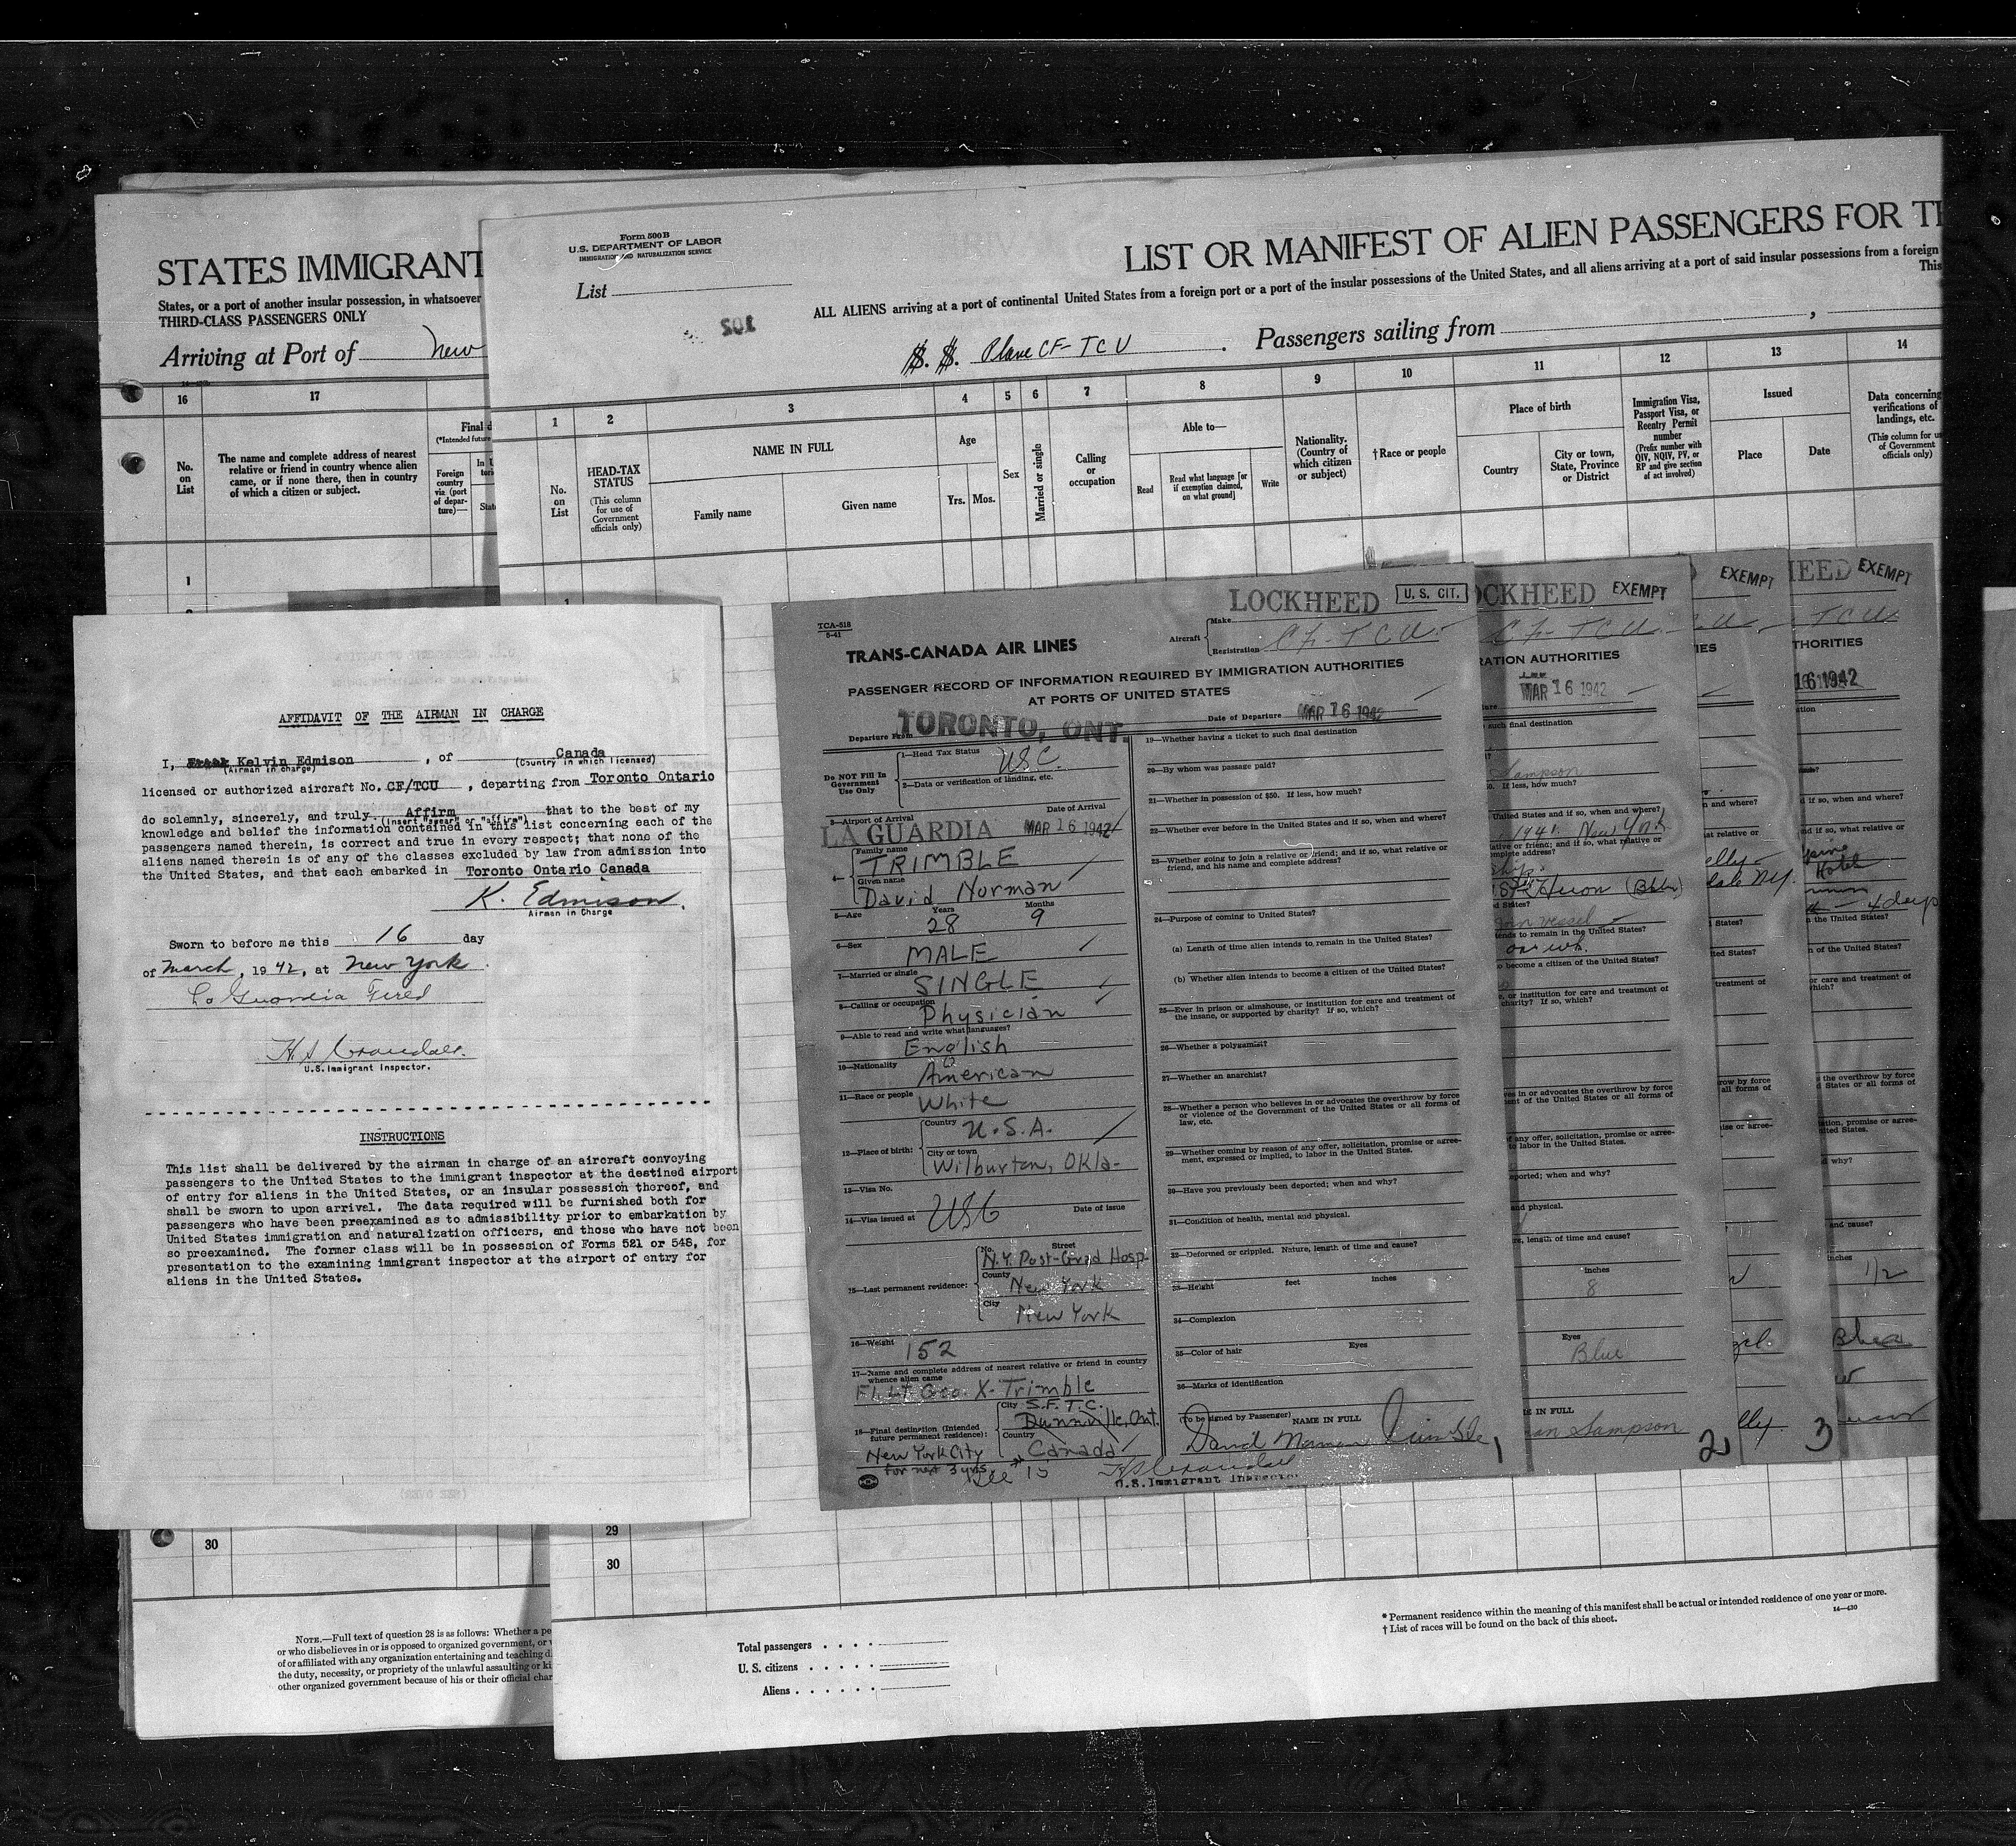 STATES IMMIGRANT
States, or a port of another insular possession, in whatsoever
THIRD-CLASS PASSENGERS ONLY
Arriving at Port of New
16
17
No.
on
List
The name and complete address of nearest
relative or friend in country whence alien
came, or if none there, then in country
of which a citizen or subject.
Final d
(*Intended future
Foreign
country
via (port
of depar-
ture)—
In U
State
1
30
NOTE.—Full text of question 28 is as follows: Whether a pe
or who disbelieves in or is opposed to organized government, or
of or affiliated with any organization entertaining and teaching d
the duty, necessity, or propriety of the unlawful assaulting or ki
other organized government because of his or their official char
Form 500B
U.S. DEPARTMENT OF LABOR
IMMIGRATION AND NATURALIZATION SERVICE
List
LIST OR MANIFEST OF ALIEN PASSENGERS FOR TH
ALL ALIENS arriving at a port of continental United States from a foreign port or a port of the insular possessions of the United States, and all aliens arriving at a port of said insular possessions from a foreign
This
S. S. Plane CF-TCU . Passengers sailing from ,
1
2
3
4
5
6
7
8
9
10
11
12
13
14
No.
on
List
HEAD-TAX
STATUS
(This column
for use of
Government
officials only)
NAME IN FULL
Family name
Given name
Age
Yrs.
Mos.
Sex
Married or single
Calling
or
occupation
Able to—
Read
Read what language [or
if exemption claimed,
on what ground]
Write
Nationality.
(Country of
which citizen
or subject)
†Race or people
Place of birth
Country
City or town,
State, Province
or District
Immigration Visa,
Passport Visa, or
Reentry Permit
number
(Prefix number with
QIV, NQIV, PV, or
RP and give section
of act involved)
Issued
Place
Date
Data concerning
verifications of
landings, etc.
(This column for us
of Government
officials only)
29
30
Total passengers
U. S. citizens
Aliens
* Permanent residence within the meaning of this manifest shall be actual or intended residence of one year or more.
† List of races will be found on the back of this sheet.
14—430
AFFIDAVIT OF THE AIRMAN IN CHARGE
I, Kelvin Edmison , of Canada
(Airman in charge) (Country in which licensed)
licensed or authorized aircraft No. CF/TCU , departing from Toronto Ontario
do solemnly, sincerely, and truly Affirm that to the best of my
(Insert "swear" or "affirm")
knowledge and belief the information contained in this list concerning each of the
passengers named therein, is correct and true in every respect; that none of the
aliens named therein is of any of the classes excluded by law from admission into
the United States, and that each embarked in Toronto Ontario Canada
K. Edmison.
Airman in Charge
Sworn to before me this 16 day
of March, 1942, at New York.
La Guardia Field
U.S.Immigrant Inspector.
INSTRUCTIONS
This list shall be delivered by the airman in charge of an aircraft conveying
passengers to the United States to the immigrant inspector at the destined airport
of entry for aliens in the United States, or an insular possession thereof, and
shall be sworn to upon arrival. The data required will be furnished both for
passengers who have been preexamined as to admissibility prior to embarkation by
United States immigration and naturalization officers, and those who have not been
so preexamined. The former class will be in possession of Forms 521 or 548, for
presentation to the examining immigrant inspector at the airport of entry for
aliens in the United States.
TCA-518
5-41
TRANS-CANADA AIR LINES
LOCKHEED
U. S. CIT.
Aircraft
Make
Registration CF-TCU
PASSENGER RECORD OF INFORMATION REQUIRED BY IMMIGRATION AUTHORITIES
AT PORTS OF UNITED STATES
Departure From TORONTO, ONT. Date of Departure MAR 16 1942
Do NOT Fill In
Government
Use Only
1—Head Tax Status USC
2—Data or verification of landing, etc.
Date of Arrival
3—Airport of Arrival
LA GUARDIA MAR 16 1942
4— Family name
TRIMBLE
Given name
David Norman
5—Age Years Months
28 9
6—Sex
MALE
7—Married or single
SINGLE
8—Calling or occupation
Physician
9—Able to read and write what languages?
English
10—Nationality
American
11—Race or people
White
12—Place of birth: Country U.S.A.
City or town
Wilburton, Okla-
13—Visa No.
14—Visa issued at Date of issue
15—Last permanent residence: No. Street
N.Y. Post-Grad Hosp-
County
New York
City
New York
16—Weight 152
17—Name and complete address of nearest relative or friend in country
whence alien came
Fl. Lt. Geo. X. Trimble
City S.F.T.C.
Dunnville, Ont.
18—Final destination (Intended
future permanent residence):
Country
Canada
New York City
for next 3 yrs.
19—Whether having a ticket to such final destination
20—By whom was passage paid?
21—Whether in possession of $50. If less, how much?
22—Whether ever before in the United States and if so, when and where?
23—Whether going to join a relative or friend; and if so, what relative or
friend, and his name and complete address?
24—Purpose of coming to United States?
(a) Length of time alien intends to remain in the United States?
(b) Whether alien intends to become a citizen of the United States?
25—Ever in prison or almshouse, or institution for care and treatment of
the insane, or supported by charity? If so, which?
26—Whether a polygamist?
27—Whether an anarchist?
28—Whether a person who believes in or advocates the overthrow by force
or violence of the Government of the United States or all forms of
law, etc.
29—Whether coming by reason of any offer, solicitation, promise or agree-
ment, expressed or implied, to labor in the United States.
30—Have you previously been deported; when and why?
31—Condition of health, mental and physical.
32—Deformed or crippled. Nature, length of time and cause?
33—Height feet inches
34—Complexion
35—Color of hair Eyes
36—Marks of identification
(To be signed by Passenger) NAME IN FULL
David Norman Trimble
1
U.S.Immigrant Inspector
OCKHEED EXEMPT
CF-TCU
RATION AUTHORITIES
MAR 16 1942
such final destination
Sampson
If less, how much?
United States and if so, when and where?
1941 New York
ative or friend; and if so, what relative or
mplete address?
Heron
vessel
tends to remain in the United States?
one wk.
o become a citizen of the United States?
e, or institution for care and treatment of
charity? If so, which?
ves in or advocates the overthrow by force
ent of the United States or all forms of
f any offer, solicitation, promise or agree-
to labor in the United States.
ported; when and why?
and physical.
re, length of time and cause?
inches
8
Eyes
Blue
E IN FULL
an Sampson
2
EXEMPT
IES
n and where?
at relative or
elly
dale N.Y.
States?
ited States?
treatment of
row by force
all forms of
ise or agree-
lly.
3
HEED EXEMPT
TCU
THORITIES
16 1942
d if so, when and where?
nd if so, what relative or
Hotel
4 days
n the United States?
n of the United States?
or care and treatment of
which?
the overthrow by force
d States or all forms of
tation, promise or agree-
ited States.
d why?
and cause?
inches
1/2
Blue